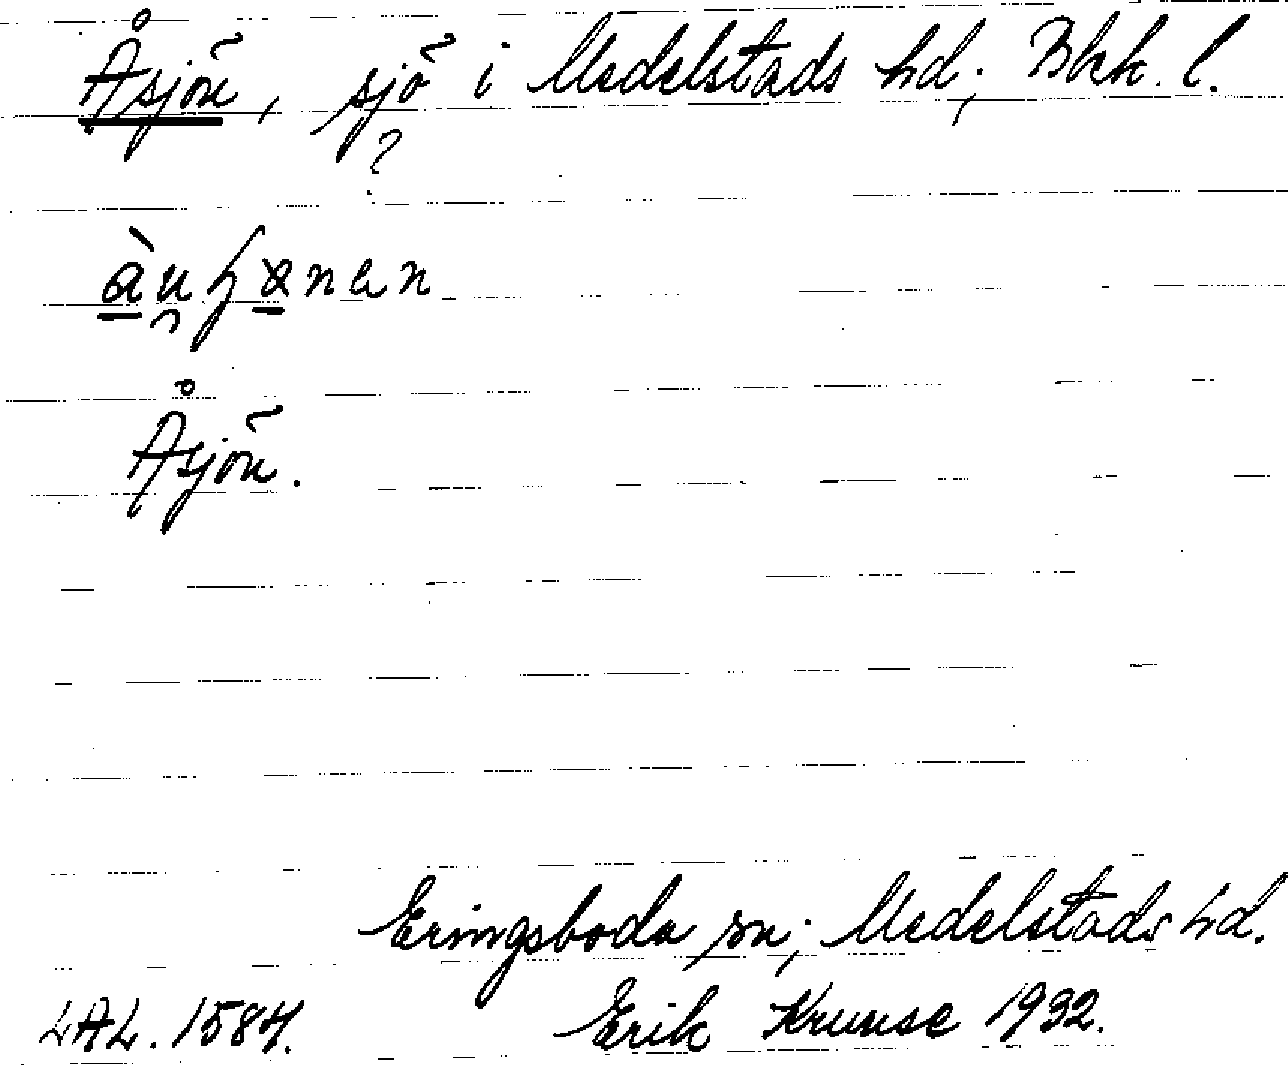 Åsjön, sjö i Medelstads hd; Blek. l.
?
Åsjön.
Eringsboda sn; Medelstads hd.
LAL. 1584. Erik Kruuse 1932.